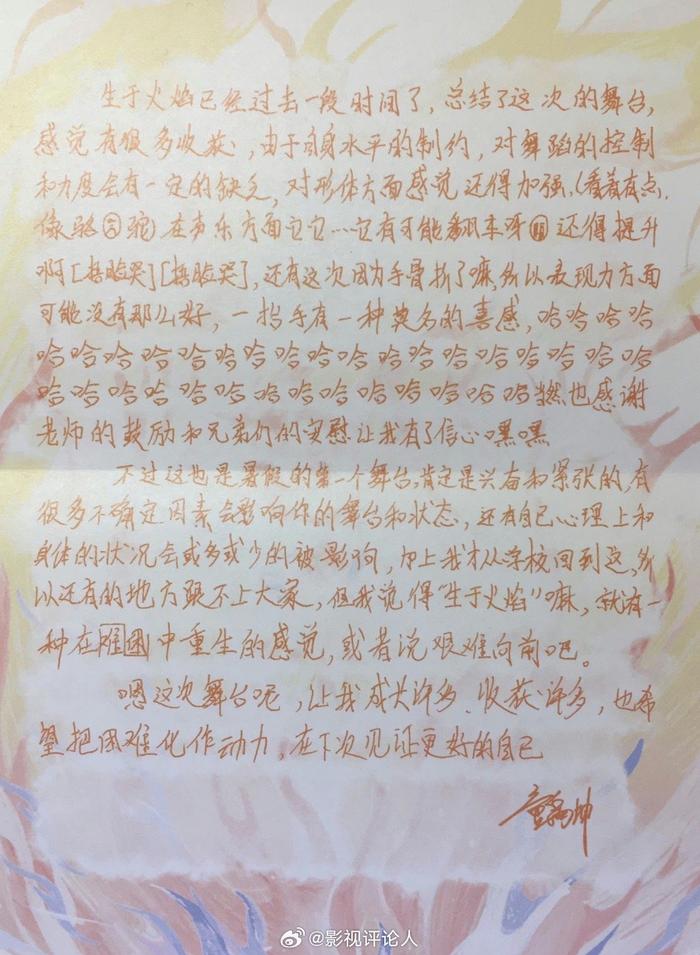 生于火焰已经过去一段时间了，总结了这次的舞台，
感觉有很多收获，由于自身水平的制约，对舞蹈的控制
和力度会有一定的缺乏，对形体方面感觉还得加强，(看着有点
像骆 驼)在声乐方面它它…它有可能翻车呀 还得提升
啊[捂脸哭][捂脸哭]，还有这次因为手骨折了嘛，所以表现力方面
可能没有那么好，一抬手有一种莫名的喜感，哈哈哈哈
哈哈哈哈哈哈哈哈哈哈哈哈哈哈哈哈哈
哈哈哈哈哈哈哈哈哈哈哈哈哈哈 然也感谢
老师的鼓励和兄弟们的安慰让我有了信心嘿嘿
不过这也是暑假的第一个舞台，肯定是兴奋和紧张的，有
很多不确定因素会影响你的舞台和状态，还有自己心理上和
身体的状况会或多或少的被影响，加上我才从学校回到这，所
以还有的地方跟不上大家，但我觉得"生于火焰"嘛，就有一
种在困难中重生的感觉，或者说艰难向前吧。
嗯这次舞台呢，让我成长许多、收获许多，也希
望把困难化作动力，在下次见证更好的自己
@影视评论人